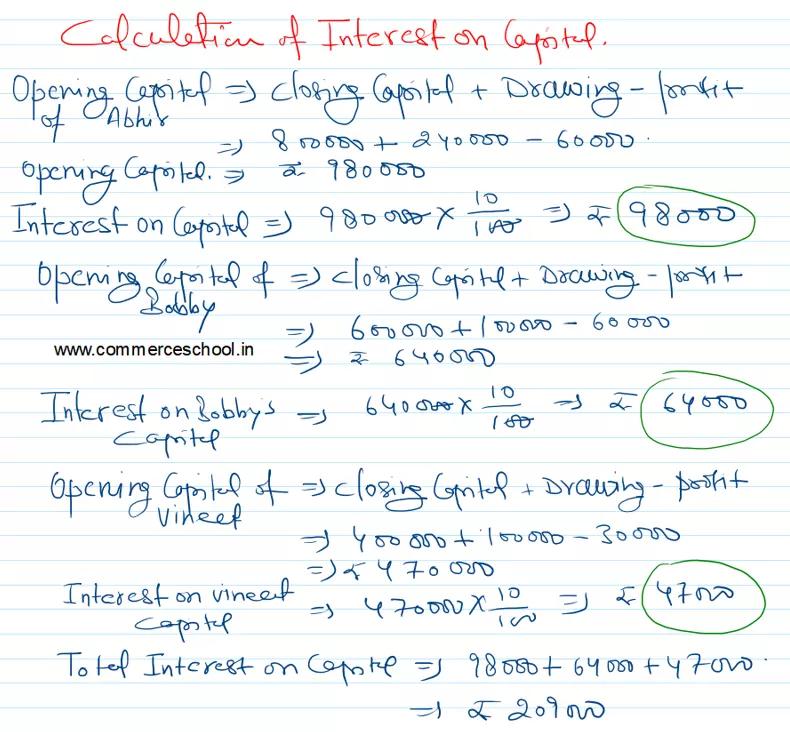 Calculation of Interest on Capital.
Opening Capital => Closing Capital + Drawing - profit
of Abhir
=> 800000 + 240000 - 60000.
Opening Capital. => ₹ 980000
Interest on Capital => 980000 × 10/100 => ₹ 98000
Opening Capital of => Closing Capital + Drawing - profit
Bobby
=> 600000 + 100000 - 60000
www.commerceschool.in
=> ₹ 640000
Interest on Bobby's => 640000 × 10/100 => ₹ 64000
Capital
Opening Capital of => Closing Capital + Drawing - profit
Vineet
=> 400000 + 100000 - 30000
=> ₹ 470000
Interest on vineet => 470000 × 10/100 => ₹ 47000
Capital
Total Interest on Capital => 98000 + 64000 + 47000.
=> ₹ 209000